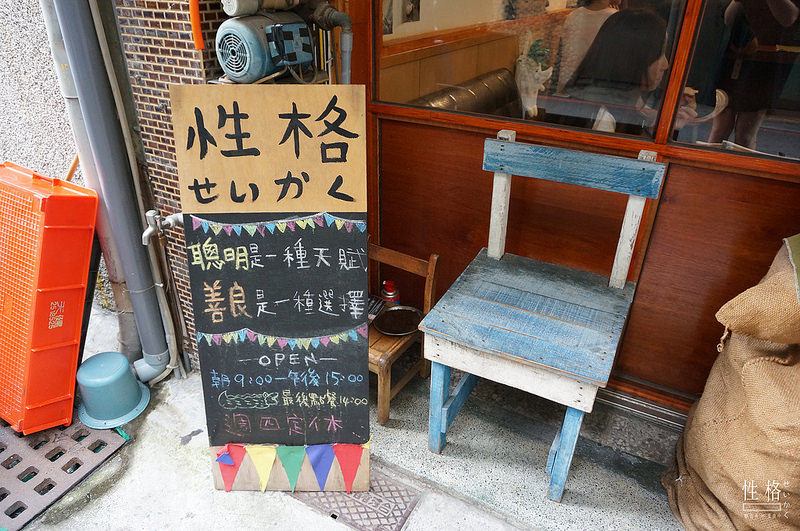 性格
せいかく
聰明是一種天賦
善良是一種選擇
—OPEN—
朝9:00—午後15:00
最後點餐14:00
週四定休
性格
せいかく